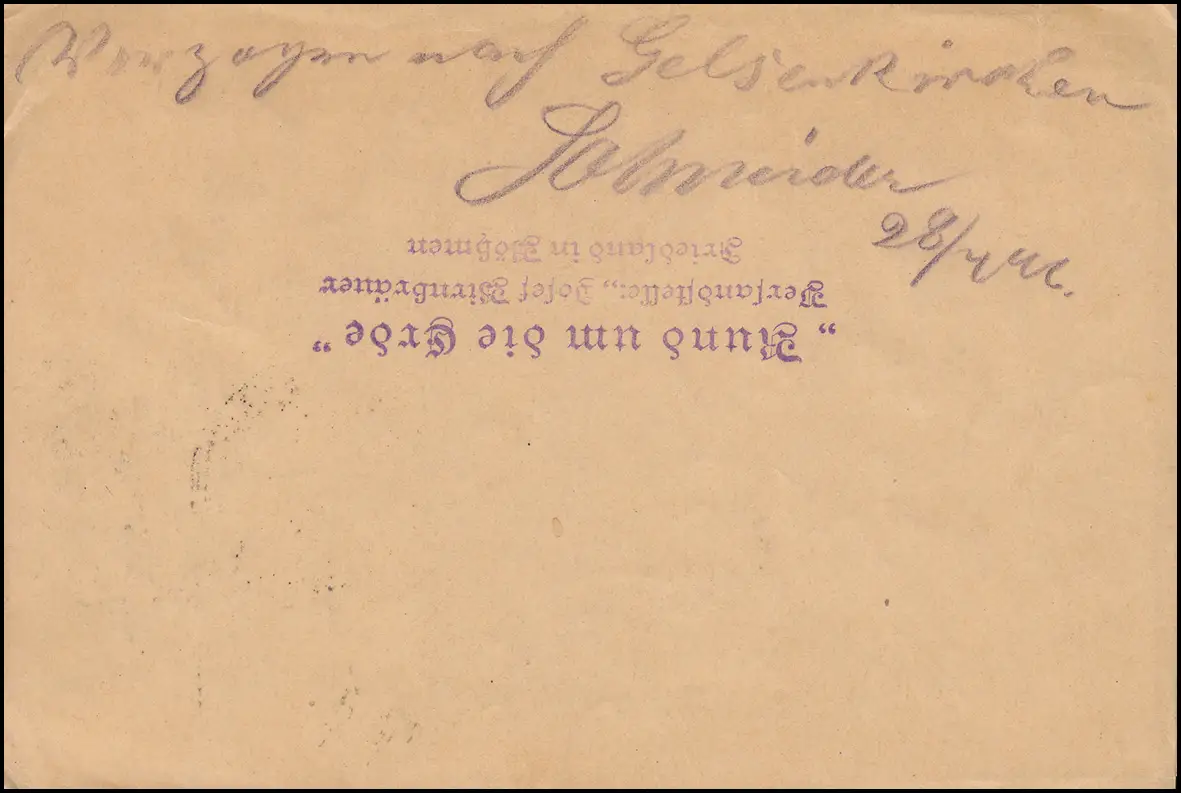 Verzogen nach Gelsenkirchen
Schneider
28/4
„Rund um die Erde“
Versandstelle: Josef Birnbräuer
Friedland in Böhmen